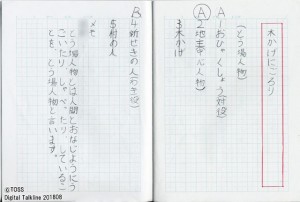 木かげにごろり
(とう場人物)
A
1おひゃくしょう(対役)
Ⓐ
2地主(中心人物)
3木かげ
B
4新せきの人(わき役)
5村の人
メモ
とう場人物とは人間とおなじようにう
ごいたり、しゃべったり、しているこ
とを、とう場人物と言います。
©TOSS
Digital Talkline 201808